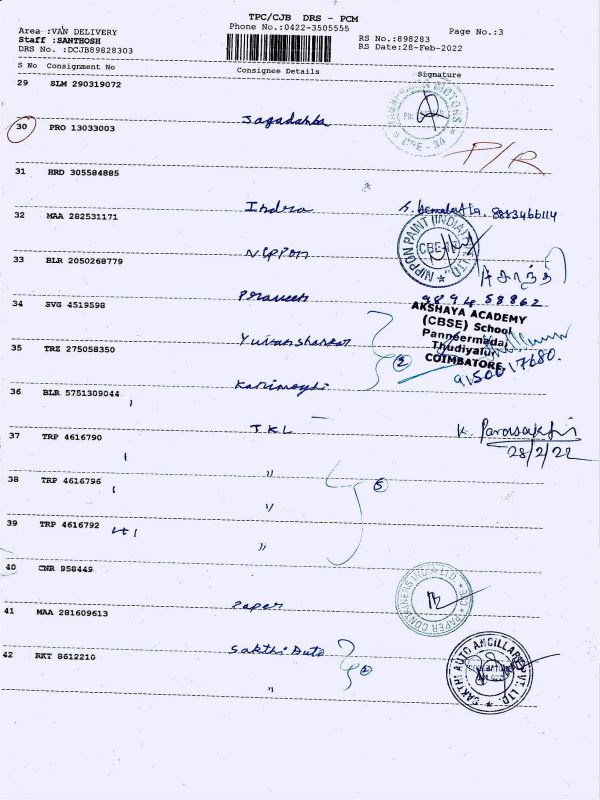 TPC/CJB DRS - PCM
Area :VAN DELIVERY
Phone No.:0422-3505555
Page No.:3
Staff :SANTHOSH
RS No.:898283
DRS No. :DCJB89828303
RS Date:28-Feb-2022
S No Consignment No
Consignee Details
Signature
29 SLM 290319072
Jagadamba
30 PRO 13033003
P/R
31 HRD 305584885
Indra
8883466114
32 MAA 282531171
Nippon
NIPPON PAINT (INDIA) PVT. LTD.
CBE-
33 BLR 2050268779
Praveen
9894 58862
34 SVG 4519598
Yuvanshankar
AKSHAYA ACADEMY
(CBSE) School
Panneermadai
Thudiyalur
COIMBATORE
2
35 TRZ 275058350
Kanimozhi
36 BLR 5751309044
JKL
K. Parasakthi
28/2/22
37 TRP 4616790
"
38 TRP 4616796
"
5
39 TRP 4616792
"
40 CNR 958449
Paper
PAPER CONTAINERS INDIA LTD.
41 MAA 281609613
Sakthi Auto
42 RKT 8612210
"
SAKTHI AUTO ANCILLARY PVT. LTD.